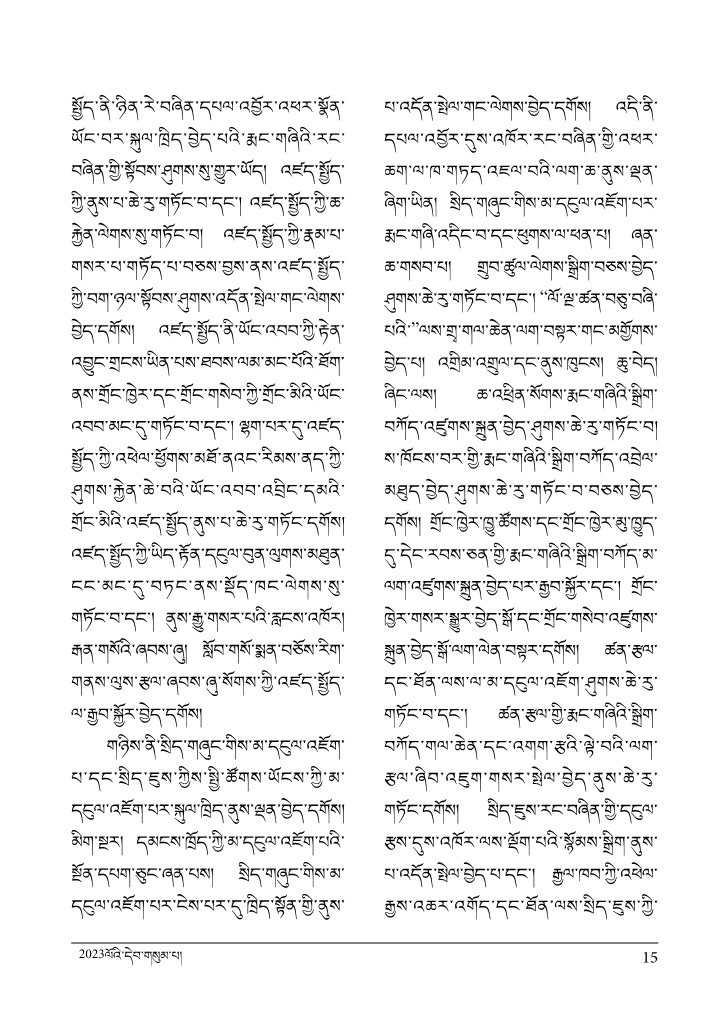 སྤྱོད་ནི་ཉིན་རེ་བཞིན་དཔལ་འབྱོར་འཕར་སྣོན་
ཡོང་བར་སྐུལ་ཁྲིད་བྱེད་པའི་རྨང་གཞིའི་རང་
བཞིན་གྱི་སྟོབས་ཤུགས་སུ་གྱུར་ཡོད། འཛད་སྤྱོད་
ཀྱི་ནུས་པ་ཆེ་རུ་གཏོང་བ་དང་། འཛད་སྤྱོད་ཀྱི་ཆ་
རྐྱེན་ལེགས་སུ་གཏོང་བ། འཛད་སྤྱོད་ཀྱི་རྣམ་པ་
གསར་པ་གཏོད་པ་བཅས་བྱས་ནས་འཛད་སྤྱོད་
ཀྱི་བག་ཉལ་སྟོབས་ཤུགས་འདོན་སྤེལ་གང་ལེགས་
བྱེད་དགོས། འཛད་སྤྱོད་ནི་ཡོང་འབབ་ཀྱི་རྟེན་
འབྱུང་གྲངས་ཡིན་པས་ཐབས་ལམ་མང་པོའི་ཐོག་
ནས་གྲོང་ཁྱེར་དང་གྲོང་གསེབ་ཀྱི་གྲོང་མིའི་ཡོང་
འབབ་མང་དུ་གཏོང་བ་དང་། ལྷག་པར་དུ་འཛད་
སྤྱོད་ཀྱི་འཕེལ་ཕྱོགས་མཐོ་ནའང་རིམས་ནད་ཀྱི་
ཤུགས་རྐྱེན་ཆེ་བའི་ཡོང་འབབ་འབྲིང་དམའི་
གྲོང་མིའི་འཛད་སྤྱོད་ནུས་པ་ཆེ་རུ་གཏོང་དགོས།
འཛད་སྤྱོད་ཀྱི་ཡིད་རྟོན་དངུལ་བུན་ལུགས་མཐུན་
ངང་མང་དུ་བཏང་ནས་སྡོད་ཁང་ལེགས་སུ་
གཏོང་བ་དང་། ནུས་རྒྱུ་གསར་པའི་རླངས་འཁོར།
རྒན་གསོའི་ཞབས་ཞུ། སློབ་གསོ་སྨན་བཅོས་རིག་
གནས་ལུས་རྩལ་ཞབས་ཞུ་སོགས་ཀྱི་འཛད་སྤྱོད་
ལ་རྒྱབ་སྐྱོར་བྱེད་དགོས།
གཉིས་ནི་སྲིད་གཞུང་གིས་མ་དངུལ་འཇོག་
པ་དང་སྲིད་ཇུས་ཀྱིས་སྤྱི་ཚོགས་ཡོངས་ཀྱི་མ་
དངུལ་འཇོག་པར་སྐུལ་ཁྲིད་ནུས་ལྡན་བྱེད་དགོས།
མིག་སྔར། དམངས་ཁྲོད་ཀྱི་མ་དངུལ་འཇོག་པའི་
སྔོན་དཔག་ཅུང་ཞན་པས། སྲིད་གཞུང་གིས་མ་
དངུལ་འཇོག་པར་ངེས་པར་དུ་ཁྲིད་སྟོན་གྱི་ནུས་
པ་འདོན་སྤེལ་གང་ལེགས་བྱེད་དགོས། འདི་ནི་
དཔལ་འབྱོར་དུས་འཁོར་རང་བཞིན་གྱི་འཕར་
ཆག་ལ་ཁ་གཏད་འཇལ་བའི་ལག་ཆ་ནུས་ལྡན་
ཞིག་ཡིན། སྲིད་གཞུང་གིས་མ་དངུལ་འཇོག་པར་
རྨང་གཞི་འདིང་བ་དང་ཕུགས་ལ་ཕན་པ། ཞན་
ཆ་གསབ་པ། གྲུབ་ཚུལ་ལེགས་སྒྲིག་བཅས་བྱེད་
ཤུགས་ཆེ་རུ་གཏོང་བ་དང་། “ལོ་ལྔ་ཚན་བཅུ་བཞི་
པའི་”ལས་གྲྭ་གལ་ཆེན་ལག་བསྟར་གང་མགྱོགས་
བྱེད་པ། འགྲིམ་འགྲུལ་དང་ནུས་ཁུངས། ཆུ་བེད།
ཞིང་ལས། ཆ་འཕྲིན་སོགས་རྨང་གཞིའི་སྒྲིག་
བཀོད་འཛུགས་སྐྲུན་བྱེད་ཤུགས་ཆེ་རུ་གཏོང་བ།
ས་ཁོངས་བར་གྱི་རྨང་གཞིའི་སྒྲིག་བཀོད་འབྲེལ་
མཐུད་བྱེད་ཤུགས་ཆེ་རུ་གཏོང་བ་བཅས་བྱེད་
དགོས། གྲོང་ཁྱེར་ཁྱུ་ཚོགས་དང་གྲོང་ཁྱེར་མུ་ཁྱུད་
དུ་དེང་རབས་ཅན་གྱི་རྨང་གཞིའི་སྒྲིག་བཀོད་མ་
ལག་འཛུགས་སྐྲུན་བྱེད་པར་རྒྱབ་སྐྱོར་དང་། གྲོང་
ཁྱེར་གསར་སྒྱུར་བྱེད་སྒོ་དང་གྲོང་གསེབ་འཛུགས་
སྐྲུན་བྱེད་སྒོ་ལག་ལེན་བསྟར་དགོས། ཚན་རྩལ་
དང་ཐོན་ལས་ལ་མ་དངུལ་འཇོག་ཤུགས་ཆེ་རུ་
གཏོང་བ་དང་། ཚན་རྩལ་གྱི་རྨང་གཞིའི་སྒྲིག་
བཀོད་གལ་ཆེན་དང་འགག་རྩའི་ལྟེ་བའི་ལག་
རྩལ་ཞིབ་འཇུག་གསར་སྤེལ་བྱེད་ནུས་ཆེ་རུ་
གཏོང་དགོས། སྲིད་ཇུས་རང་བཞིན་གྱི་དངུལ་
རྩས་དུས་འཁོར་ལས་ལྡོག་པའི་སྙོམས་སྒྲིག་ནུས་
པ་འདོན་སྤེལ་བྱེད་པ་དང་། རྒྱལ་ཁབ་ཀྱི་འཕེལ་
རྒྱས་འཆར་འགོད་དང་ཐོན་ལས་སྲིད་ཇུས་ཀྱི་
2023ལོའི་དེབ་གསུམ་པ། 15